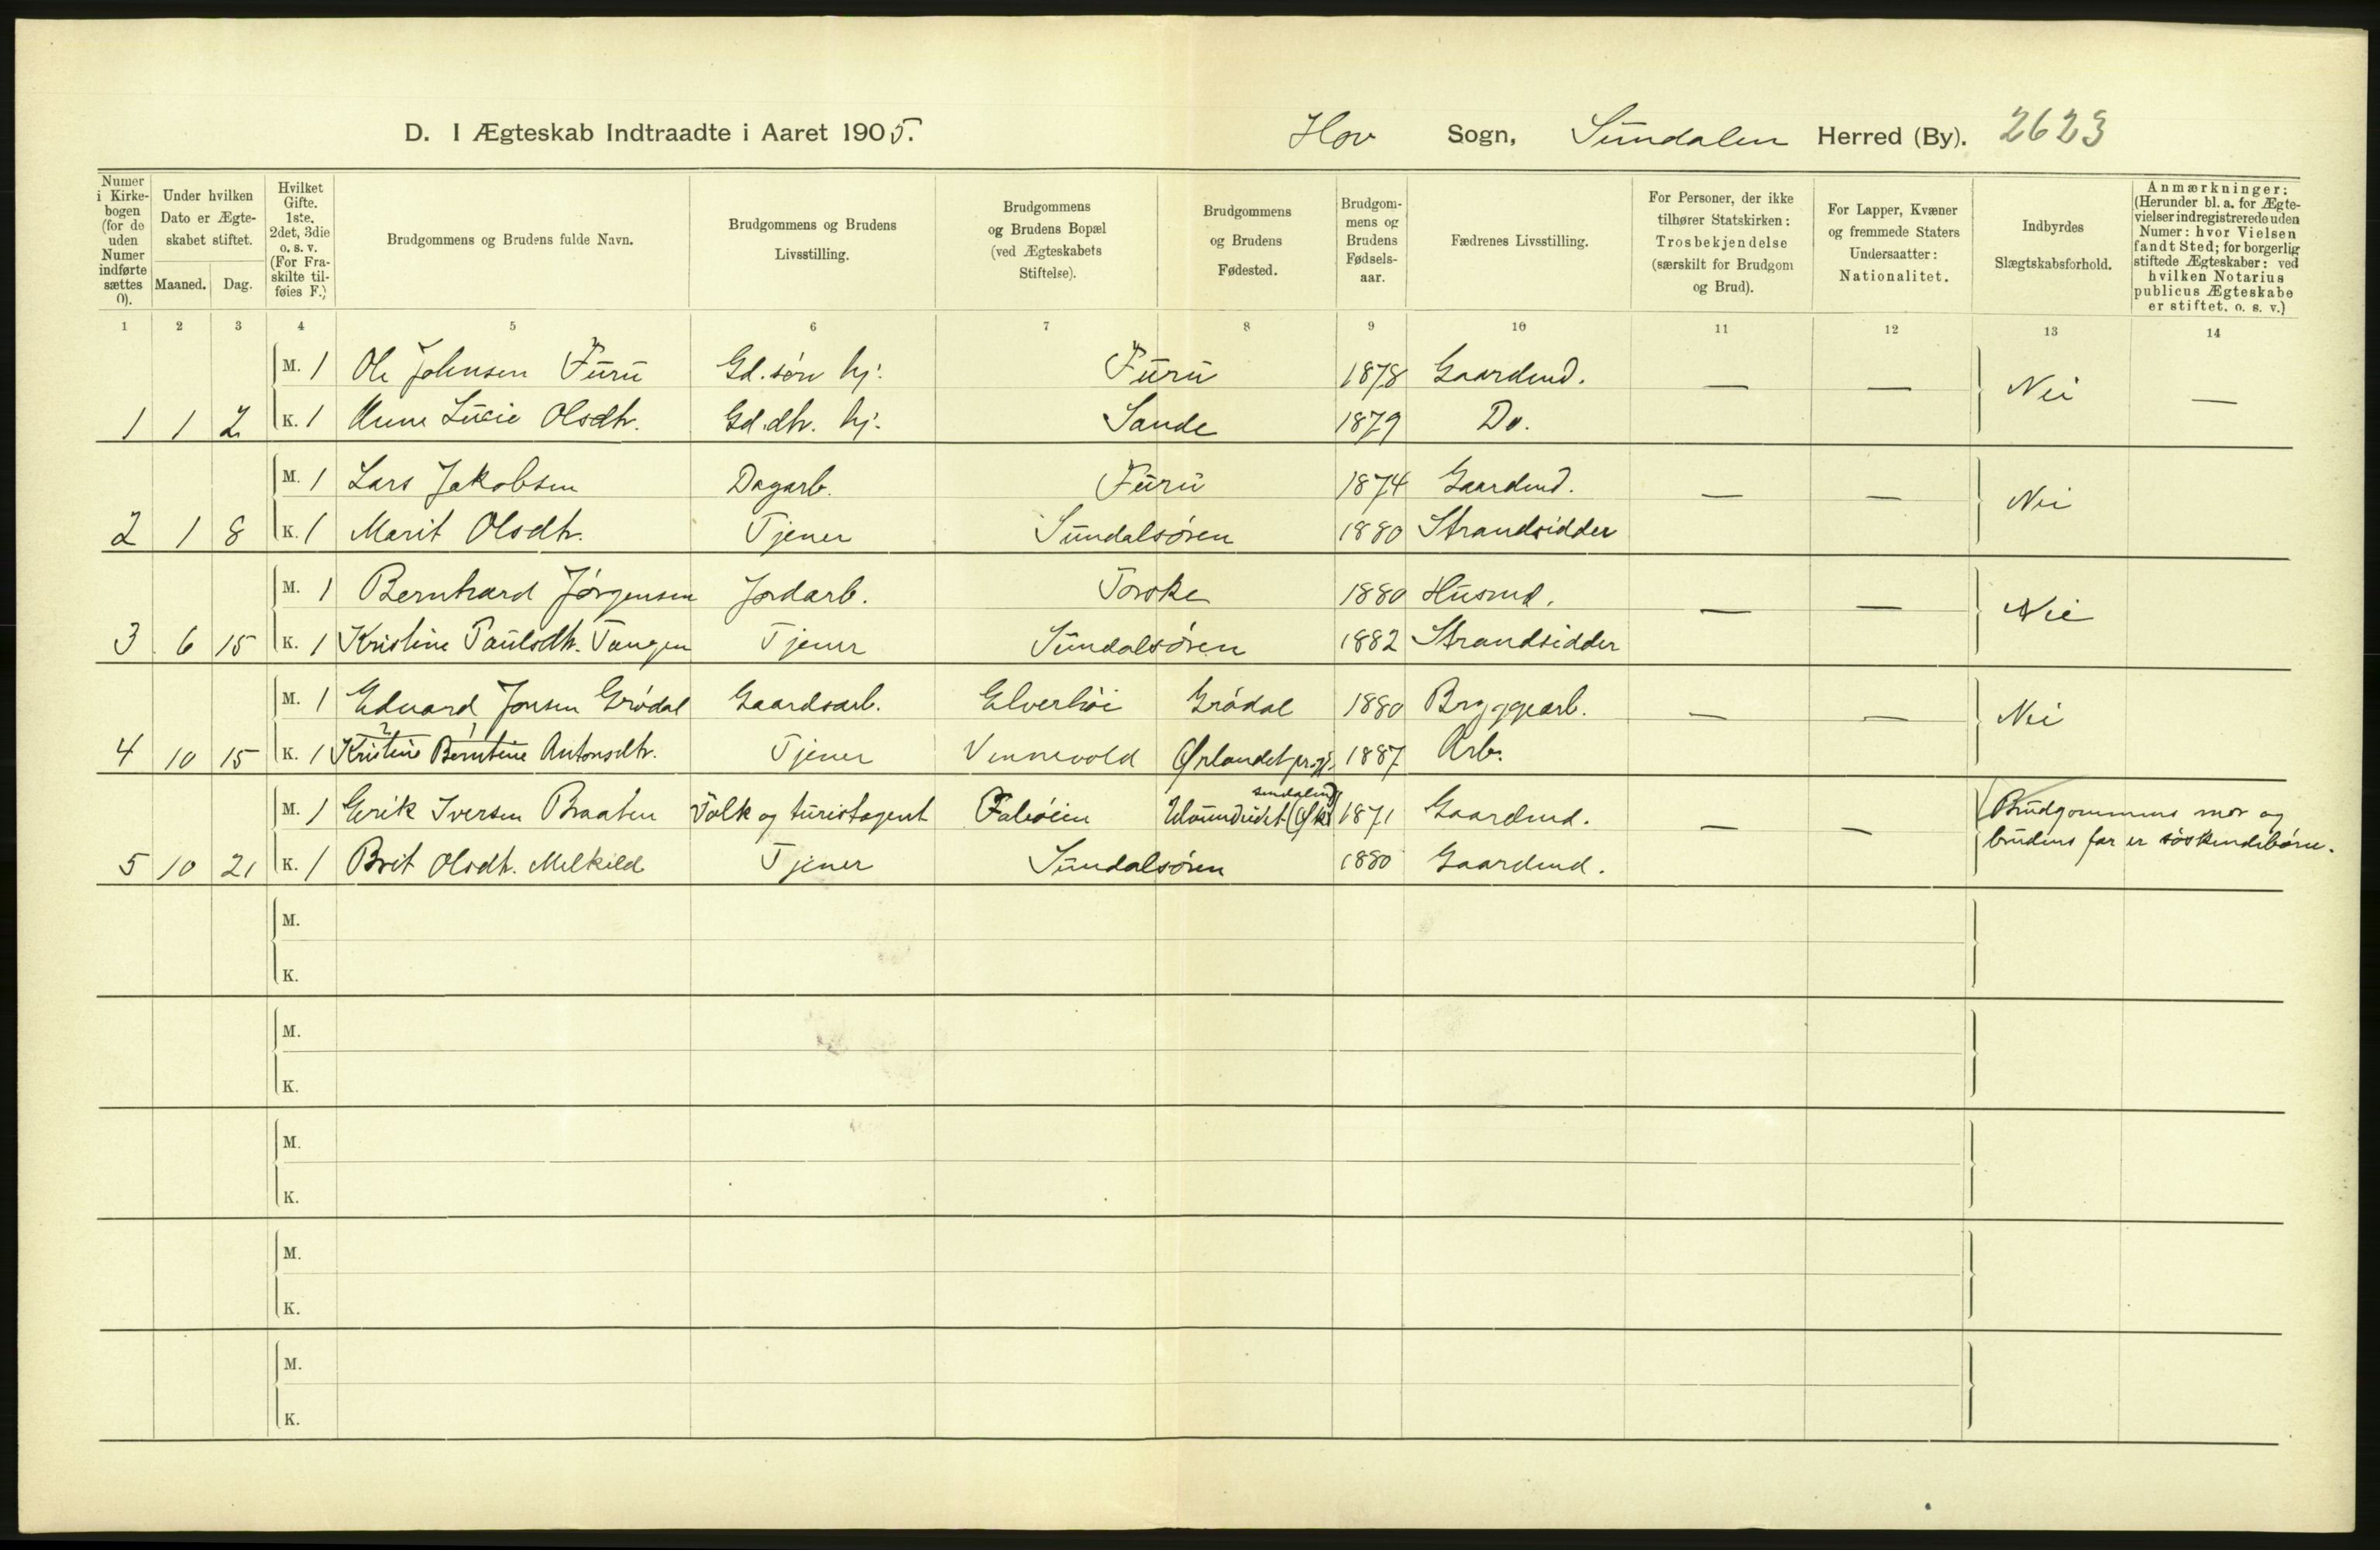 D. I Ægteskab Indtraadte i Aaret 1905. Hov Sogn, Sundalen Herred (By). 2623
Numer i Kirke-bogen (for de uden Numer indførte sættes 0).
Under hvilken Dato er Ægte-skabet stiftet.
Maaned. Dag.
Hvilket Gifte. 1ste, 2det, 3die o. s. v. (For Fra-skilte til-føies F.)
Brudgommens og Brudens fulde Navn.
Brudgommens og Brudens Livsstilling.
Brudgommens og Brudens Bopæl (ved Ægteskabets Stiftelse).
Brudgommens og Brudens Fødested.
Brudgom-mens og Brudens Fødsels-aar.
Fædrenes Livsstilling.
For Personer, der ikke tilhører Statskirken: Trosbekjendelse (særskilt for Brudgom og Brud).
For Lapper, Kvæner og fremmede Staters Undersaatter: Nationalitet.
Indbyrdes Slægtskabsforhold.
Anmærkninger: (Herunder bl. a. for Ægte-vielser indregistrerede uden Numer: hvor Vielsen fandt Sted; for borgerlig stiftede Ægteskaber: ved hvilken Notarius publicus Ægteskabe er stiftet, o. s. v.)
1 2 3 4 5 6 7 8 9 10 11 12 13 14
M. 1 Ole Johnsen Furu Gd.søn hj. Furu 1878 Gaardmd. — — Nei —
1 1 2 K. 1 Anne Lucie Olsdtr. Gd.dtr. hj. Sande 1879 Do.
M. 1 Lars Jakobsen Dagarb. Furu 1874 Gaardmd. — — Nei
2 1 8 K. 1 Marit Olsdtr. Tjener Sundalsøren 1880 Strandsidder
M. 1 Bernhard Jørgensen Jordarb. Torske 1880 Husmd. — — Nei
3 6 15 K. 1 Kristine Paulsdtr. Tangen Tjener Sundalsøren 1882 Strandsidder
M. 1 Edvard Jonsen Grødal Gaardsarb. Elverhøi Grødal 1880 Bryggearb. — — Nei
2 1
4 10 15 K. 1 Kristine Berntine Antonsdtr. Tjener Vennevold Ørlandet prgj. 1887 Arb.
M. 1 Erik Iversen Braaten Tolk og turistagent Faleøien 1871 Gaardmd. — — Brudgommens mor og
brudens far er søskendebørn.
5 10 21 K. 1 Brit Olsdtr. Melkild Tjener Sundalsøren 1880 Gaardmd.
M.
K.
M.
K.
M.
K.
M.
K.
M.
K.